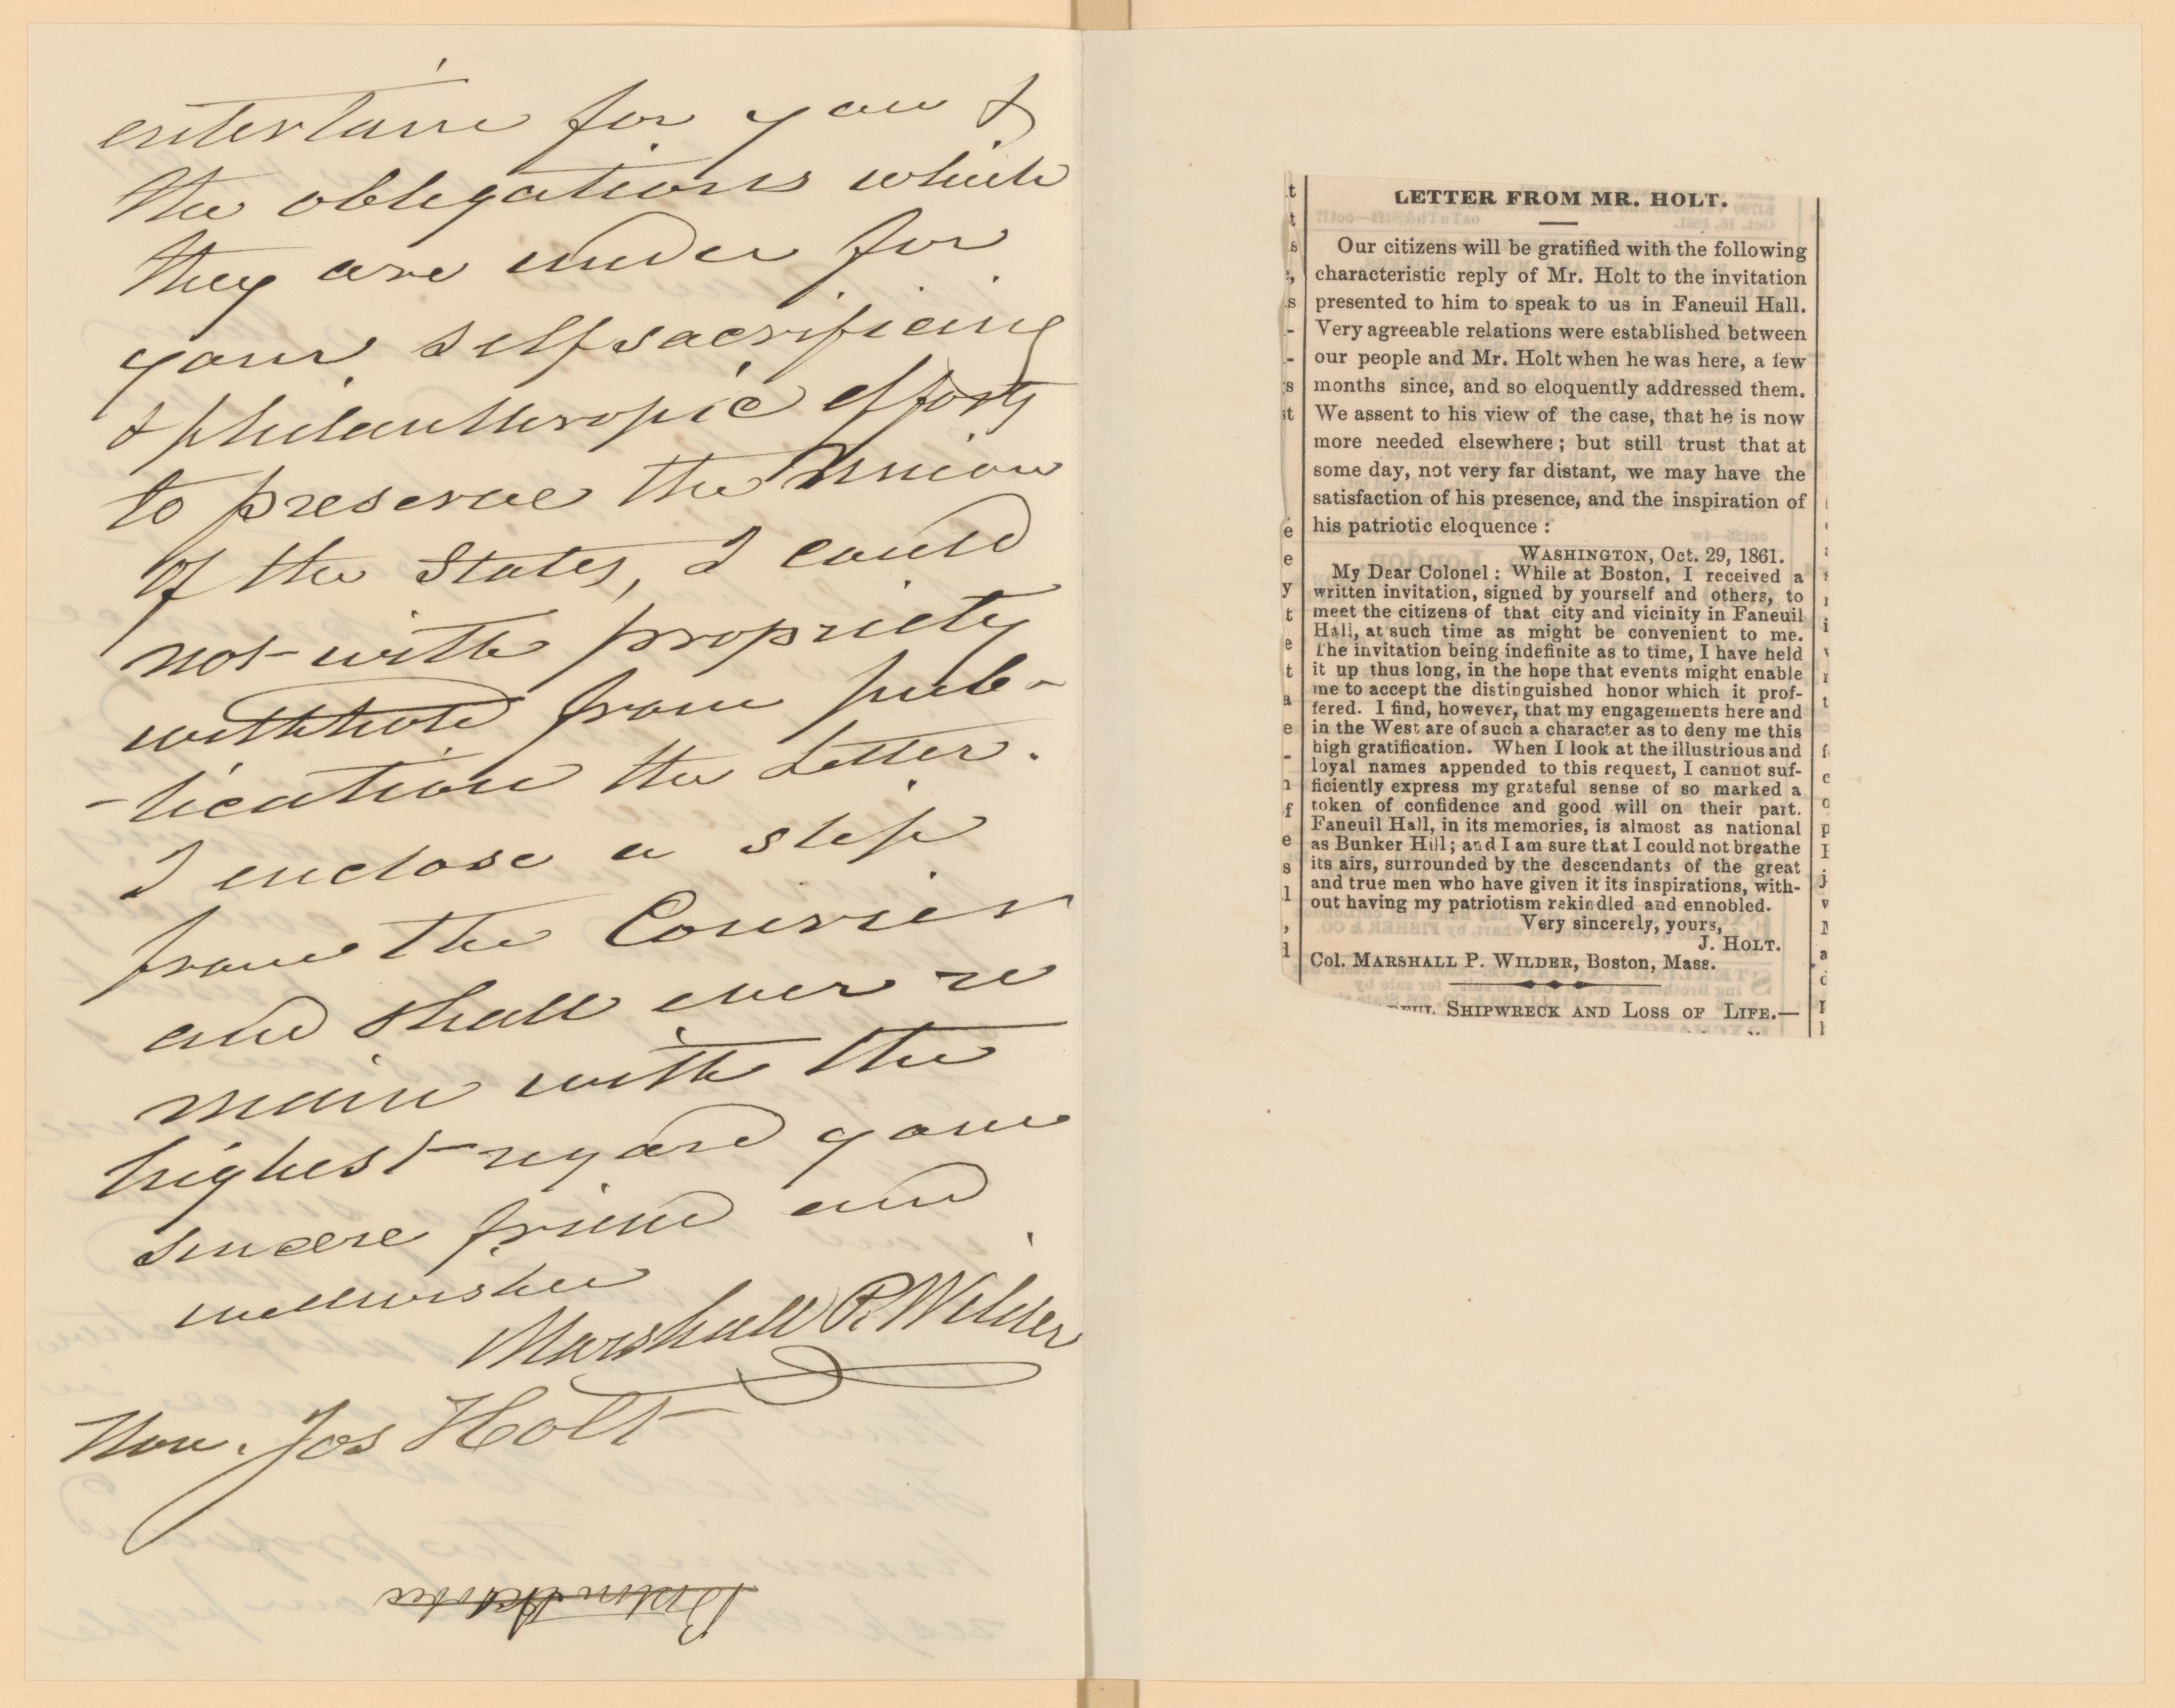 entertain for you &
the obligations which
they are under for
your selfsacrificing
& philanthropic efforts
to preserve the Union
of the States, I could
not with propriety
withhold from pub-
-lication the Letter.
I enclose a slip
from the Courier
and shall ever re
main with the
highest regard your
sincere friend and
wellwisher
Marshall P. Wilder
Hon. Jos Holt
Boston October
LETTER FROM MR. HOLT.
Our citizens will be gratified with the following
characteristic reply of Mr. Holt to the invitation
presented to him to speak to us in Faneuil Hall.
Very agreeable relations were established between
our people and Mr. Holt when he was here, a few
months since, and so eloquently addressed them.
We assent to his view of the case, that he is now
more needed elsewhere; but still trust that at
some day, not very far distant, we may have the
satisfaction of his presence, and the inspiration of
his patriotic eloquence:
WASHINGTON, Oct. 29, 1861.
My Dear Colonel: While at Boston, I received a
written invitation, signed by yourself and others, to
meet the citizens of that city and vicinity in Faneuil
Hall, at such time as might be convenient to me.
The invitation being indefinite as to time, I have held
it up thus long, in the hope that events might enable
me to accept the distinguished honor which it prof-
fered. I find, however, that my engagements here and
in the West are of such a character as to deny me this
high gratification. When I look at the illustrious and
loyal names appended to this request, I cannot suf-
ficiently express my grateful sense of so marked a
token of confidence and good will on their part.
Faneuil Hall, in its memories, is almost as national
as Bunker Hill; and I am sure that I could not breathe
its airs, surrounded by the descendants of the great
and true men who have given it its inspirations, with-
out having my patriotism rekindled and ennobled.
Very sincerely, yours,
J. HOLT.
Col. MARSHALL P. WILDER, Boston, Mass.
SHIPWRECK AND LOSS OF LIFE.—